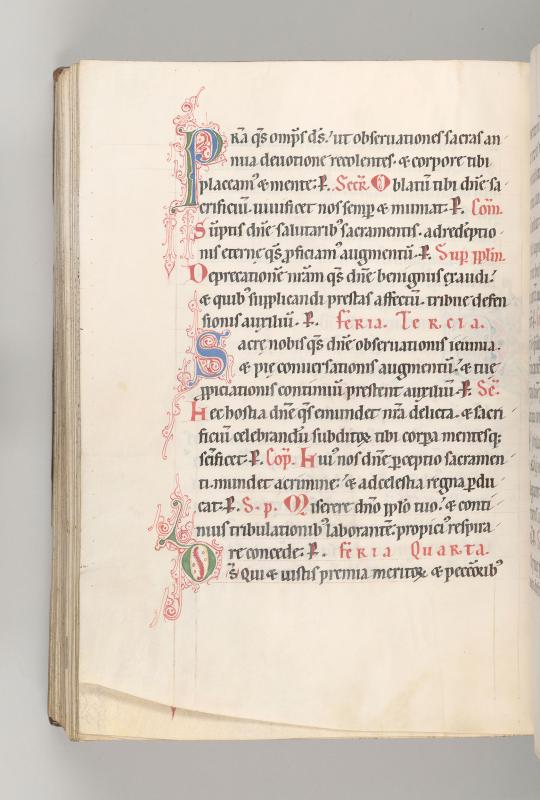 PRa qs omps ds. ut observationes sacras an
nua devotione recolentes. & corpore tibi
placeam' & mente. P. Secr. Oblatū tibi dn̄e sa
crificiū. vivificet nos semp & muniat. P. Com.
Sūptis dn̄e salutarib' sacramentis. ad redēptio
nis eterne qs pficiam' augmentū. P. Sup pplm.
Deprecationē nr̄am qs dn̄e benignus exaudi.
& quib' supplicandi prestas affectū. tribue defen
sionis auxiliū. P. feria. Tercia.
Sacre nobis qs dn̄e observationis ieiunia.
& pie conversationis augmentū. & tue
ppiciationis continuū prestent auxiliū. P. Se.
Hec hostia dn̄e qs emundet nr̄a delicta. & sacri
ficiū celebrandū subditoꝝ tibi corpa mentesq;
sc̄ificet. P. Cōp. Hui' nos dn̄e pceptio sacramen
ti. mundet a crimine. & ad celestia regna pdu
cat. P. S. p. Miserere dn̄o pplo tuo. & conti
nuis tribulationib' laborantē. propici' respira
re concede. P. feria Quarta.
Ds qui & iustis premia meritoꝝ & peccōrib'